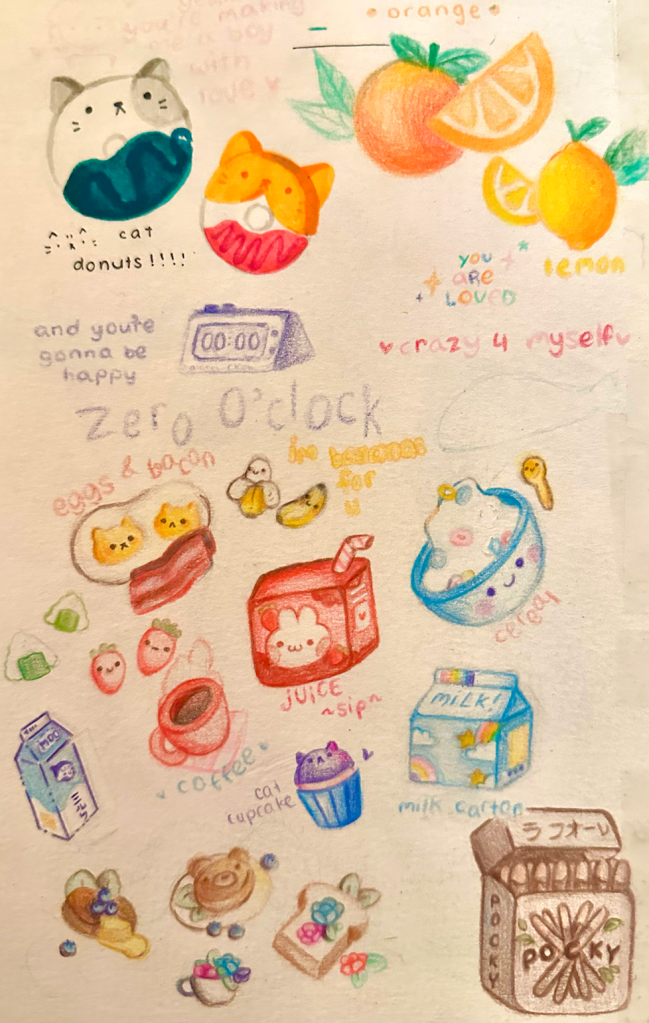 you're making
me a boy
with
love
orange
cat
donuts!!!!
YOU
ARE
LOVED
lemon
and you're
gonna be
happy
00:00
crazy 4 myself
zero o'clock
eggs & bacon
im bananas
for
u
cereal
JUICE
~sip~
MiLK!
MOO
milk
coffee
cat
cupcake
milk carton
ラフォーレ
POCKY
POCKY